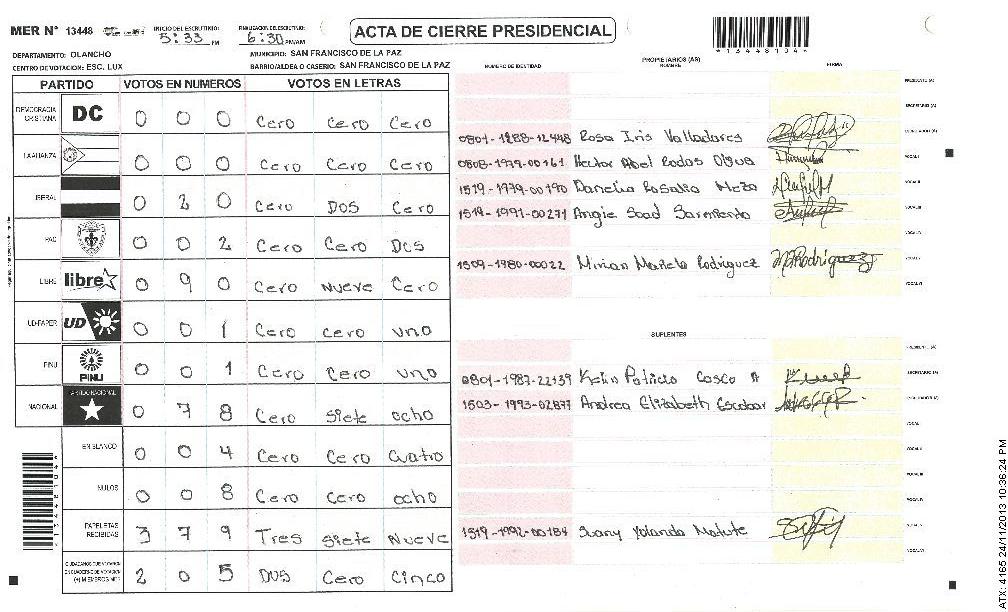 MER Nº 13448 INICIO DEL ESCRUTINIO: 5:33 PM FINALIZACION DEL ESCRUTINIO: 6:30 PM/AM ACTA DE CIERRE PRESIDENCIAL
DEPARTAMENTO: OLANCHO MUNICIPIO: SAN FRANCISCO DE LA PAZ
CENTRO DE VOTACION: ESC. LUX BARRIO/ALDEA O CASERIO: SAN FRANCISCO DE LA PAZ
PARTIDO VOTOS EN NUMEROS VOTOS EN LETRAS
DEMOCRACIA CRISTIANA DC 0 0 0 Cero Cero Cero
LA ALIANZA 0 0 0 Cero Cero Cero
LIBERAL 0 2 0 Cero DOS Cero
PAC 0 0 2 Cero Cero Dos
LIBRE libre 0 9 0 Cero Nueve Cero
UD-FAPER UD 0 0 1 Cero cero uno
PINU PINU 0 0 1 Cero Cero uno
NACIONAL PARTIDO NACIONAL 0 7 8 Cero siete ocho
EN BLANCO 0 0 4 Cero Cero Cuatro
NULOS 0 0 8 Cero Cero ocho
PAPELETAS RECIBIDAS 3 7 9 Tres siete Nueve
(+) MIEMBROS MER 2 0 5 DOS Cero Cinco
PROPIETARIOS (AS)
NUMERO DE IDENTIDAD NOMBRE FIRMA
PRESIDENTE (A)
SECRETARIO (A)
0801-1988-12448 Rosa Iris Valladares ESCRUTADOR (A)
0808-1979-00161 Hector Abel Rodas VOCAL I
1519-1979-00190 Danelia Rosalia Meza VOCAL II
1519-1991-00271 Angie Saad Sarmiento VOCAL III
VOCAL IV
1509-1980-00022 Mirian Mariela Rodriguez VOCAL V
VOCAL VI
SUPLENTES
PRESIDENTE (A)
0801-1987-22139 Kelin Patricio Cosco A SECRETARIO (A)
1503-1993-02877 Andrea Elizabeth Escobar ESCRUTADOR (A)
VOCAL I
VOCAL II
VOCAL III
VOCAL IV
1519-1992-00184 Suany Yolanda Matute VOCAL V
VOCAL VI
ATX: 4165 24/11/2013 10:36:24 PM